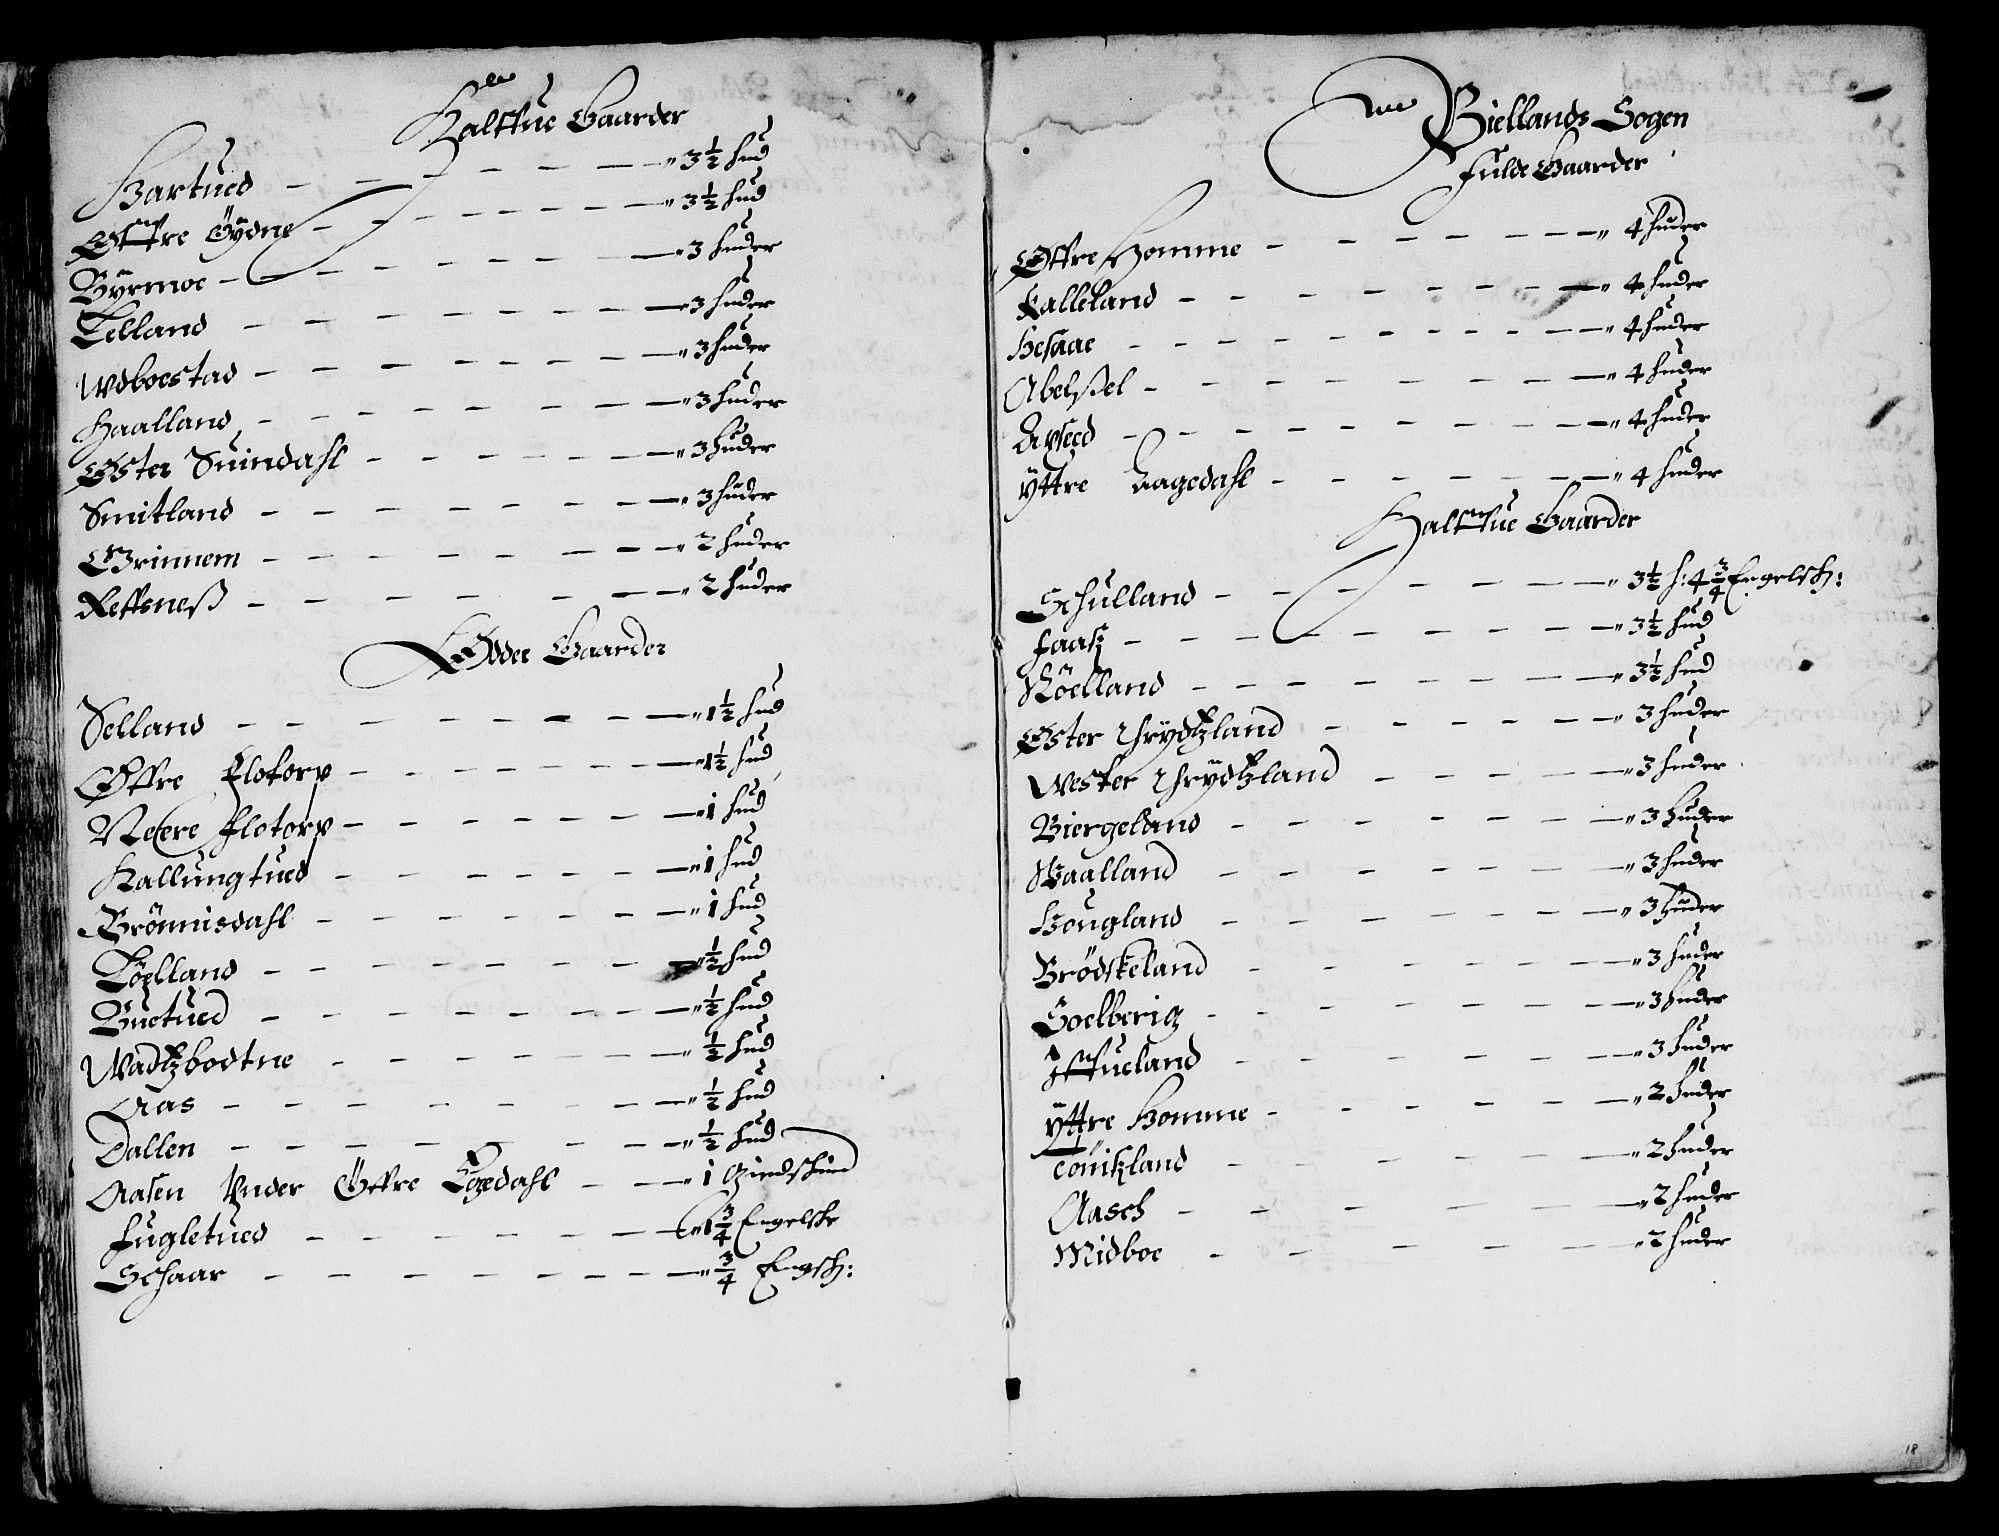 Halffue Gaarder
Hartued — 3½ hud
Øffre Öÿdne — 3½ hud
Bÿrmoe — 3 huder
Lelland — 3 huder
Wdboestad — 3 huder
Haalland — 3 huder
Øster Suindahl — 3 huder
Smitland — 3 huder
Grinnem — 2 huder
Reffsneß — 2 huder
Ødder Gaarder
Selland — 1½ hud
Øffre Flotorp — 1½ hud
Neere Flotorp — 1 hud
Kallungtued — 1 hud
Brömisdahl — 1 hud
Löelland — ½ hud
Buetued — ½ hud
Wadtzbodtne — ½ hud
Aas — ½ hud
Dallen — ½ hud
Aasen Vnder Öffre Egedahl — 1 Giedskind
Fugletued — 1¾ Engelske
Schaar — ¾ Engsch:
Biellands Sogen
Fulde Gaarder
Øffre Homme — 4 huder
Kalleland — 4 huder
Hesaae — 4 huder
Abelßel — 4 huder
Avseed — 4 huder
ÿttre Aagedahl — 4 huder
Halffue Gaarder
Schulland — 3½ h: 4¾ Engelsch:
Faas — 3½ hud
Röelland — 3½ hud
Øster Thrydtzland — 3 huder
Wester Thrydtzland — 3 huder
Biergeland — 3 huder
Waalland — 3 huder
Hougland — 3 huder
Brödskeland — 3 huder
Soelberig — 3 huder
Iffueland — 3 huder
ÿttre Homme — 2 huder
Tönikland — 2 huder
Aasch — 2 huder
Midboe — 2 huder
18